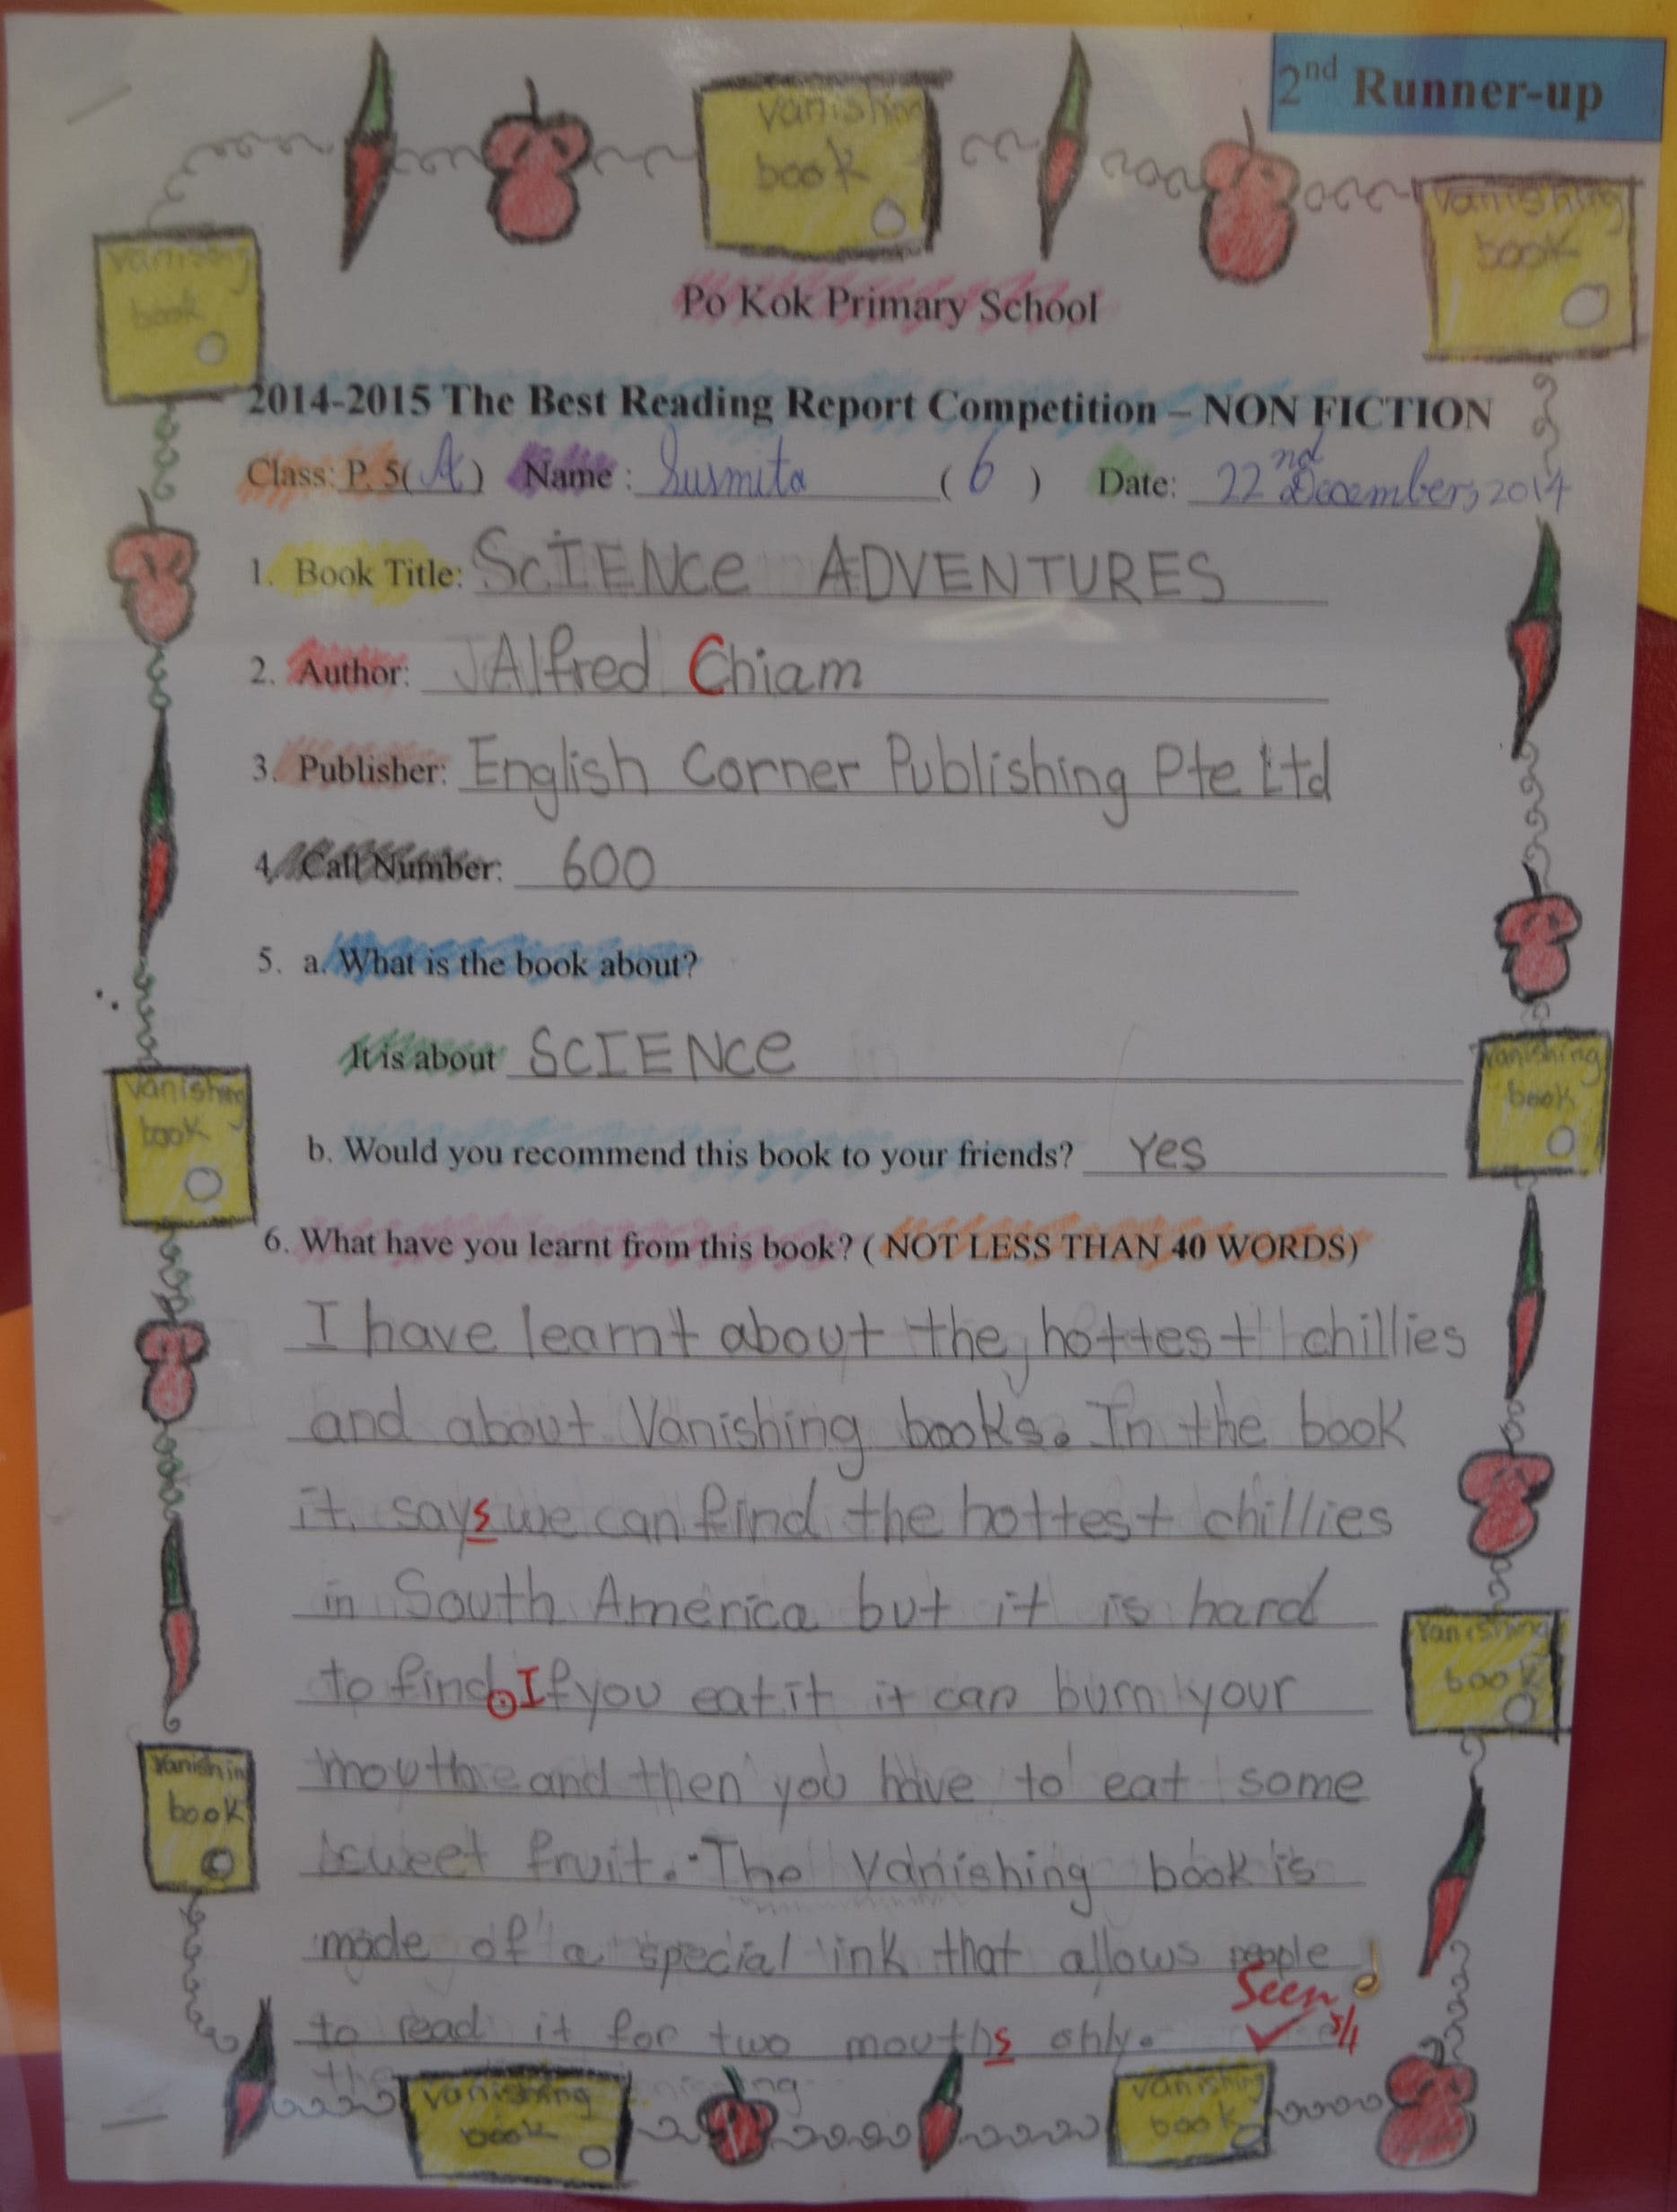 2nd Runner-up
vanishing book
vanishing book
vanishing book
Po Kok Primary School
2014-2015 The Best Reading Report Competition – NON FICTION
Class: P. 5(A) Name : Susmita (6) Date: 22nd December, 2014
1. Book Title: SCIENCe ADVENTURES
2. Author: Alfred Chiam
3. Publisher: English Corner Publishing Pte Ltd
4. Call Number: 600
5. a. What is the book about?
It is about SCIENCe
vanishing book
vanishing book
b. Would you recommend this book to your friends? Yes
6. What have you learnt from this book? ( NOT LESS THAN 40 WORDS)
I have learnt about the hottest chillies
and about Vanishing books. In the book
it says we can find the hottest chillies
in South America but it is hard
to find. If you eat it it can burn your
vanishing book
and then you have to eat some
vanishin book
sweet fruit. The Vanishing book is
made of a special ink that allows people
Seen
to read it for two mouths only. 5/1
vanishing book
vanishing book